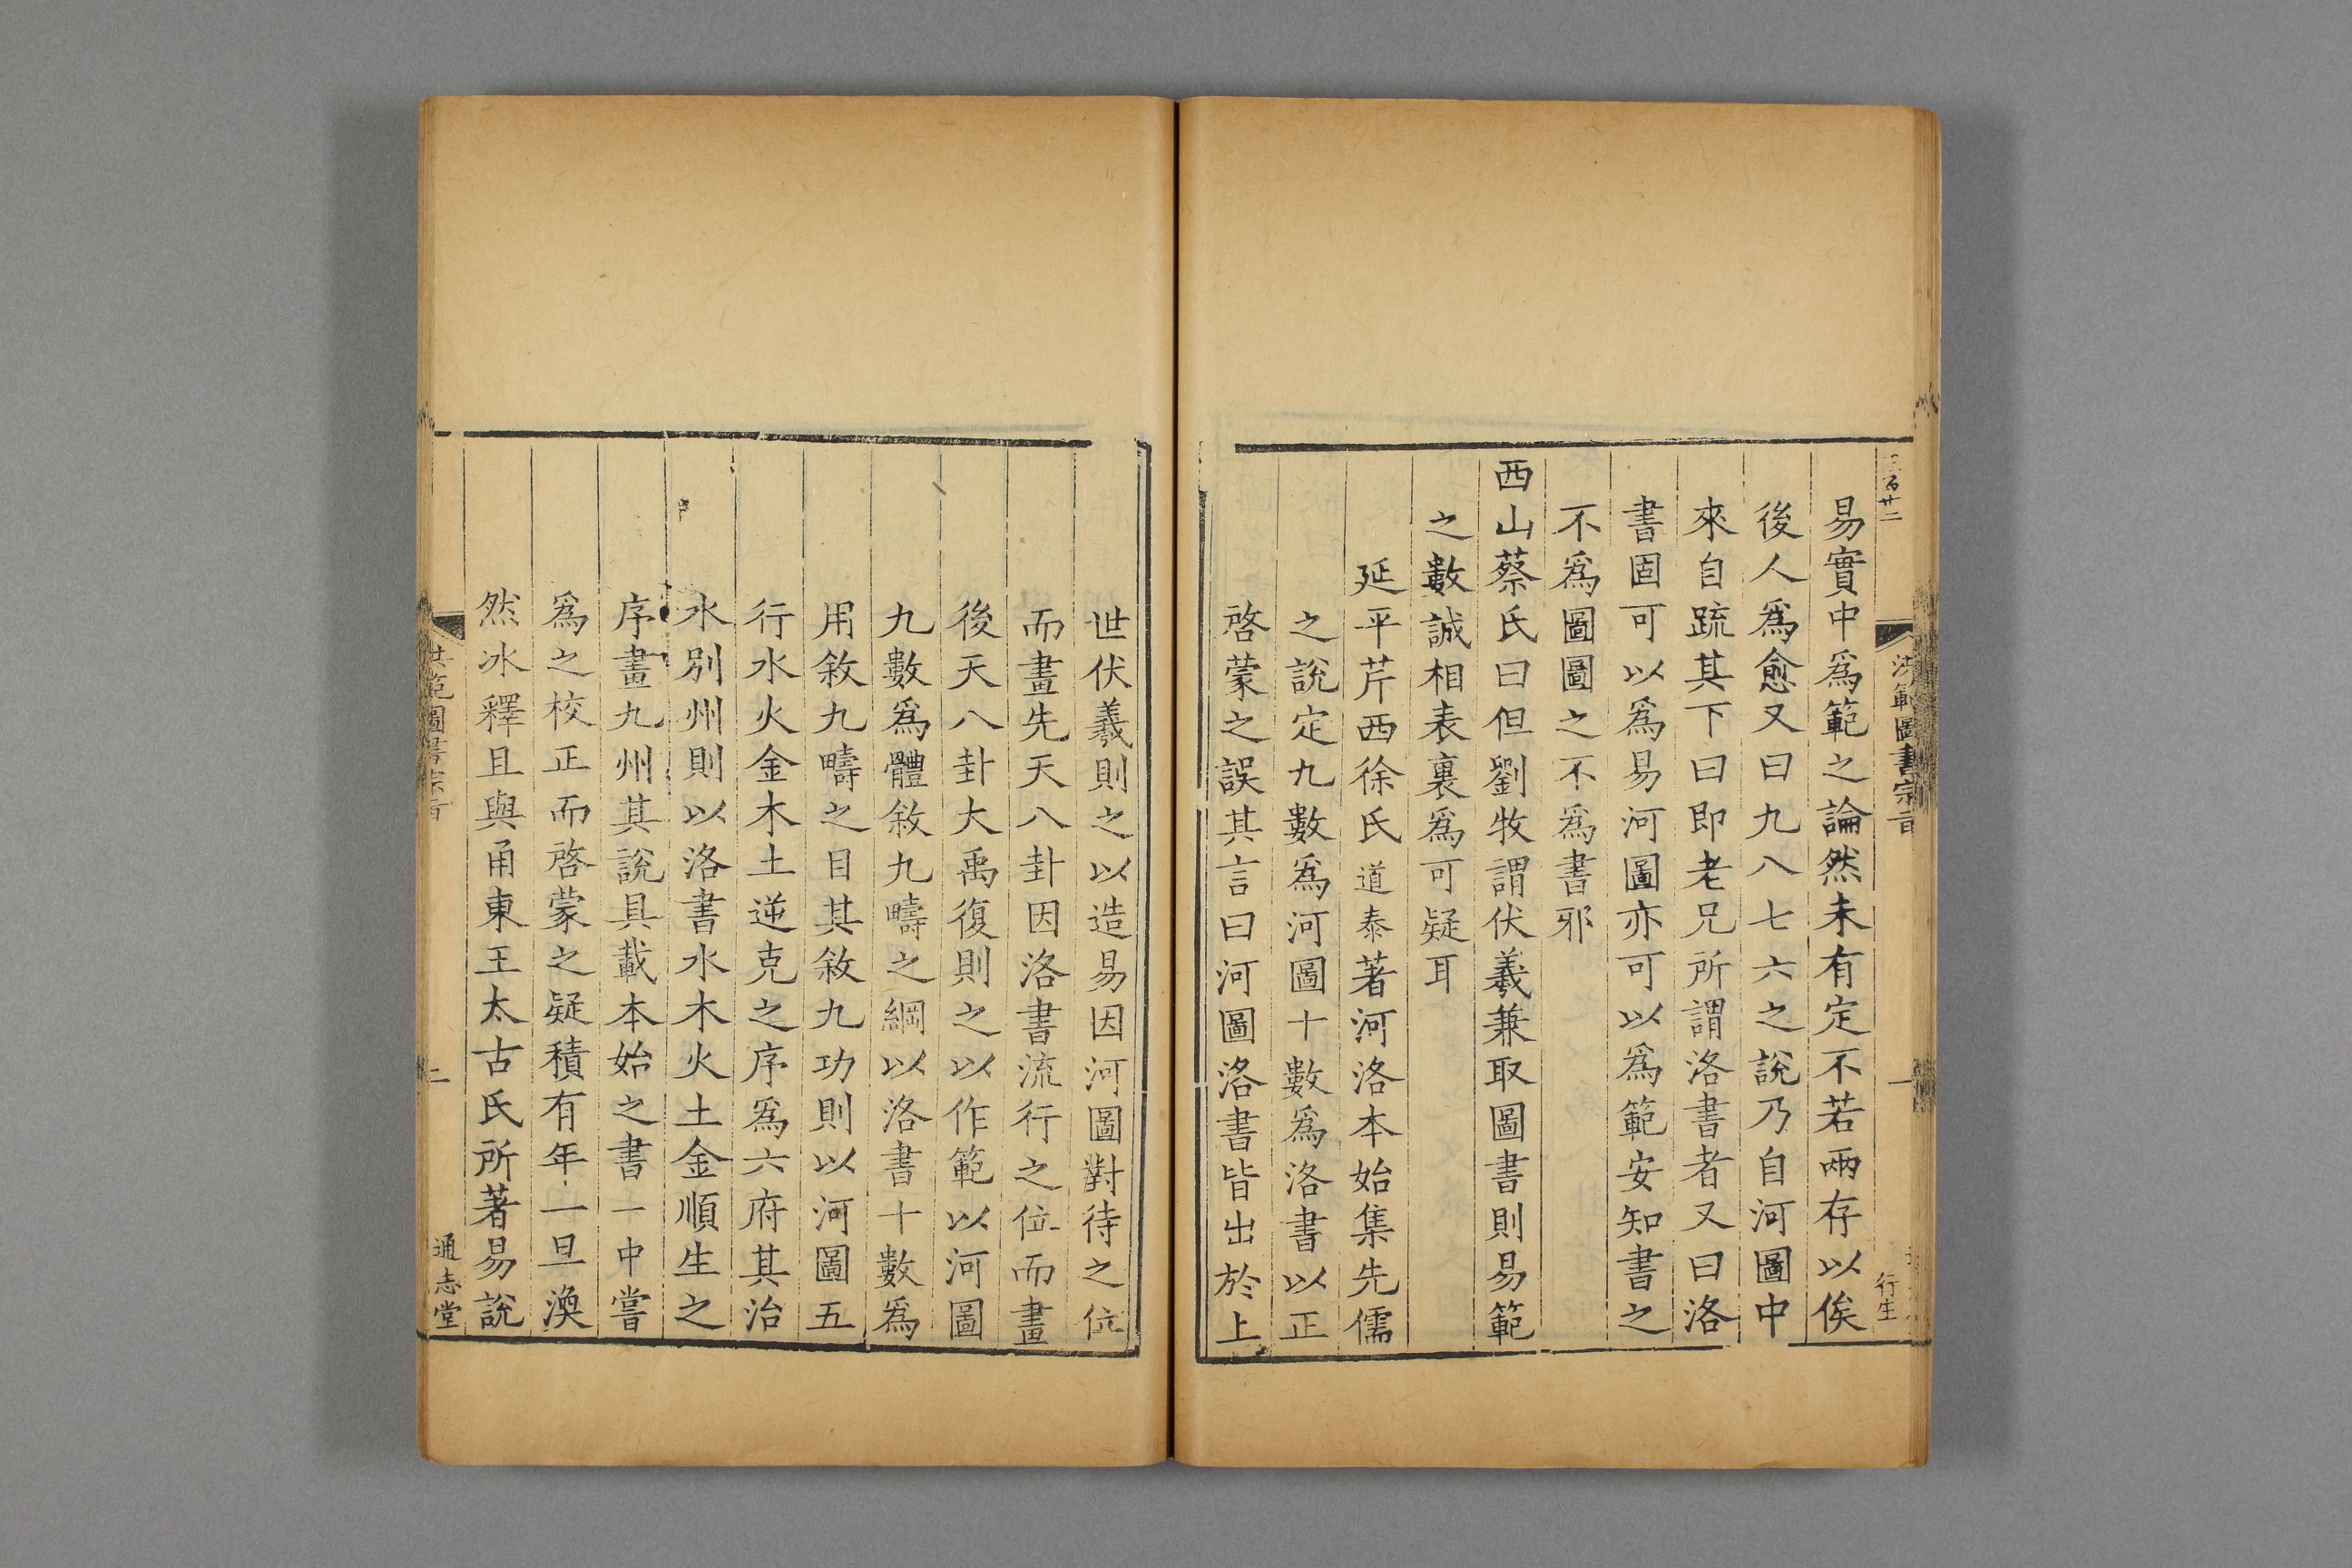 三百廿二
洪範圖書宗旨
一
行生
易實中爲範之論然未有定不若兩存以俟
後人爲愈又曰九八七六之說乃自河圖中
來自疏其下曰即老兄所謂洛書者又曰洛
書固可以爲易河圖亦可以爲範安知書之
不爲圖圖之不爲書邪
西山蔡氏曰但劉牧謂伏羲兼取圖書則易範
之數誠相表裏爲可疑耳
延平芹西徐氏道泰著河洛本始集先儒
之說定九數爲河圖十數爲洛書以正
啓蒙之誤其言曰河圖洛書皆出於上
世伏羲則之以造易因河圖對待之位
而畫先天八卦因洛書流行之位而畫
後天八卦大禹復則之以作範以河圖
九數爲體敘九疇之綱以洛書十數爲
用敘九疇之目其敘九功則以河圖五
行水火金木土逆克之序爲六府其治
水別州則以洛書水木火土金順生之
序畫九州其說具載本始之書一中嘗
爲之校正而啓蒙之疑積有年一旦渙
然冰釋且與甬東王太古氏所著易說
洪範圖書宗旨
二
通志堂